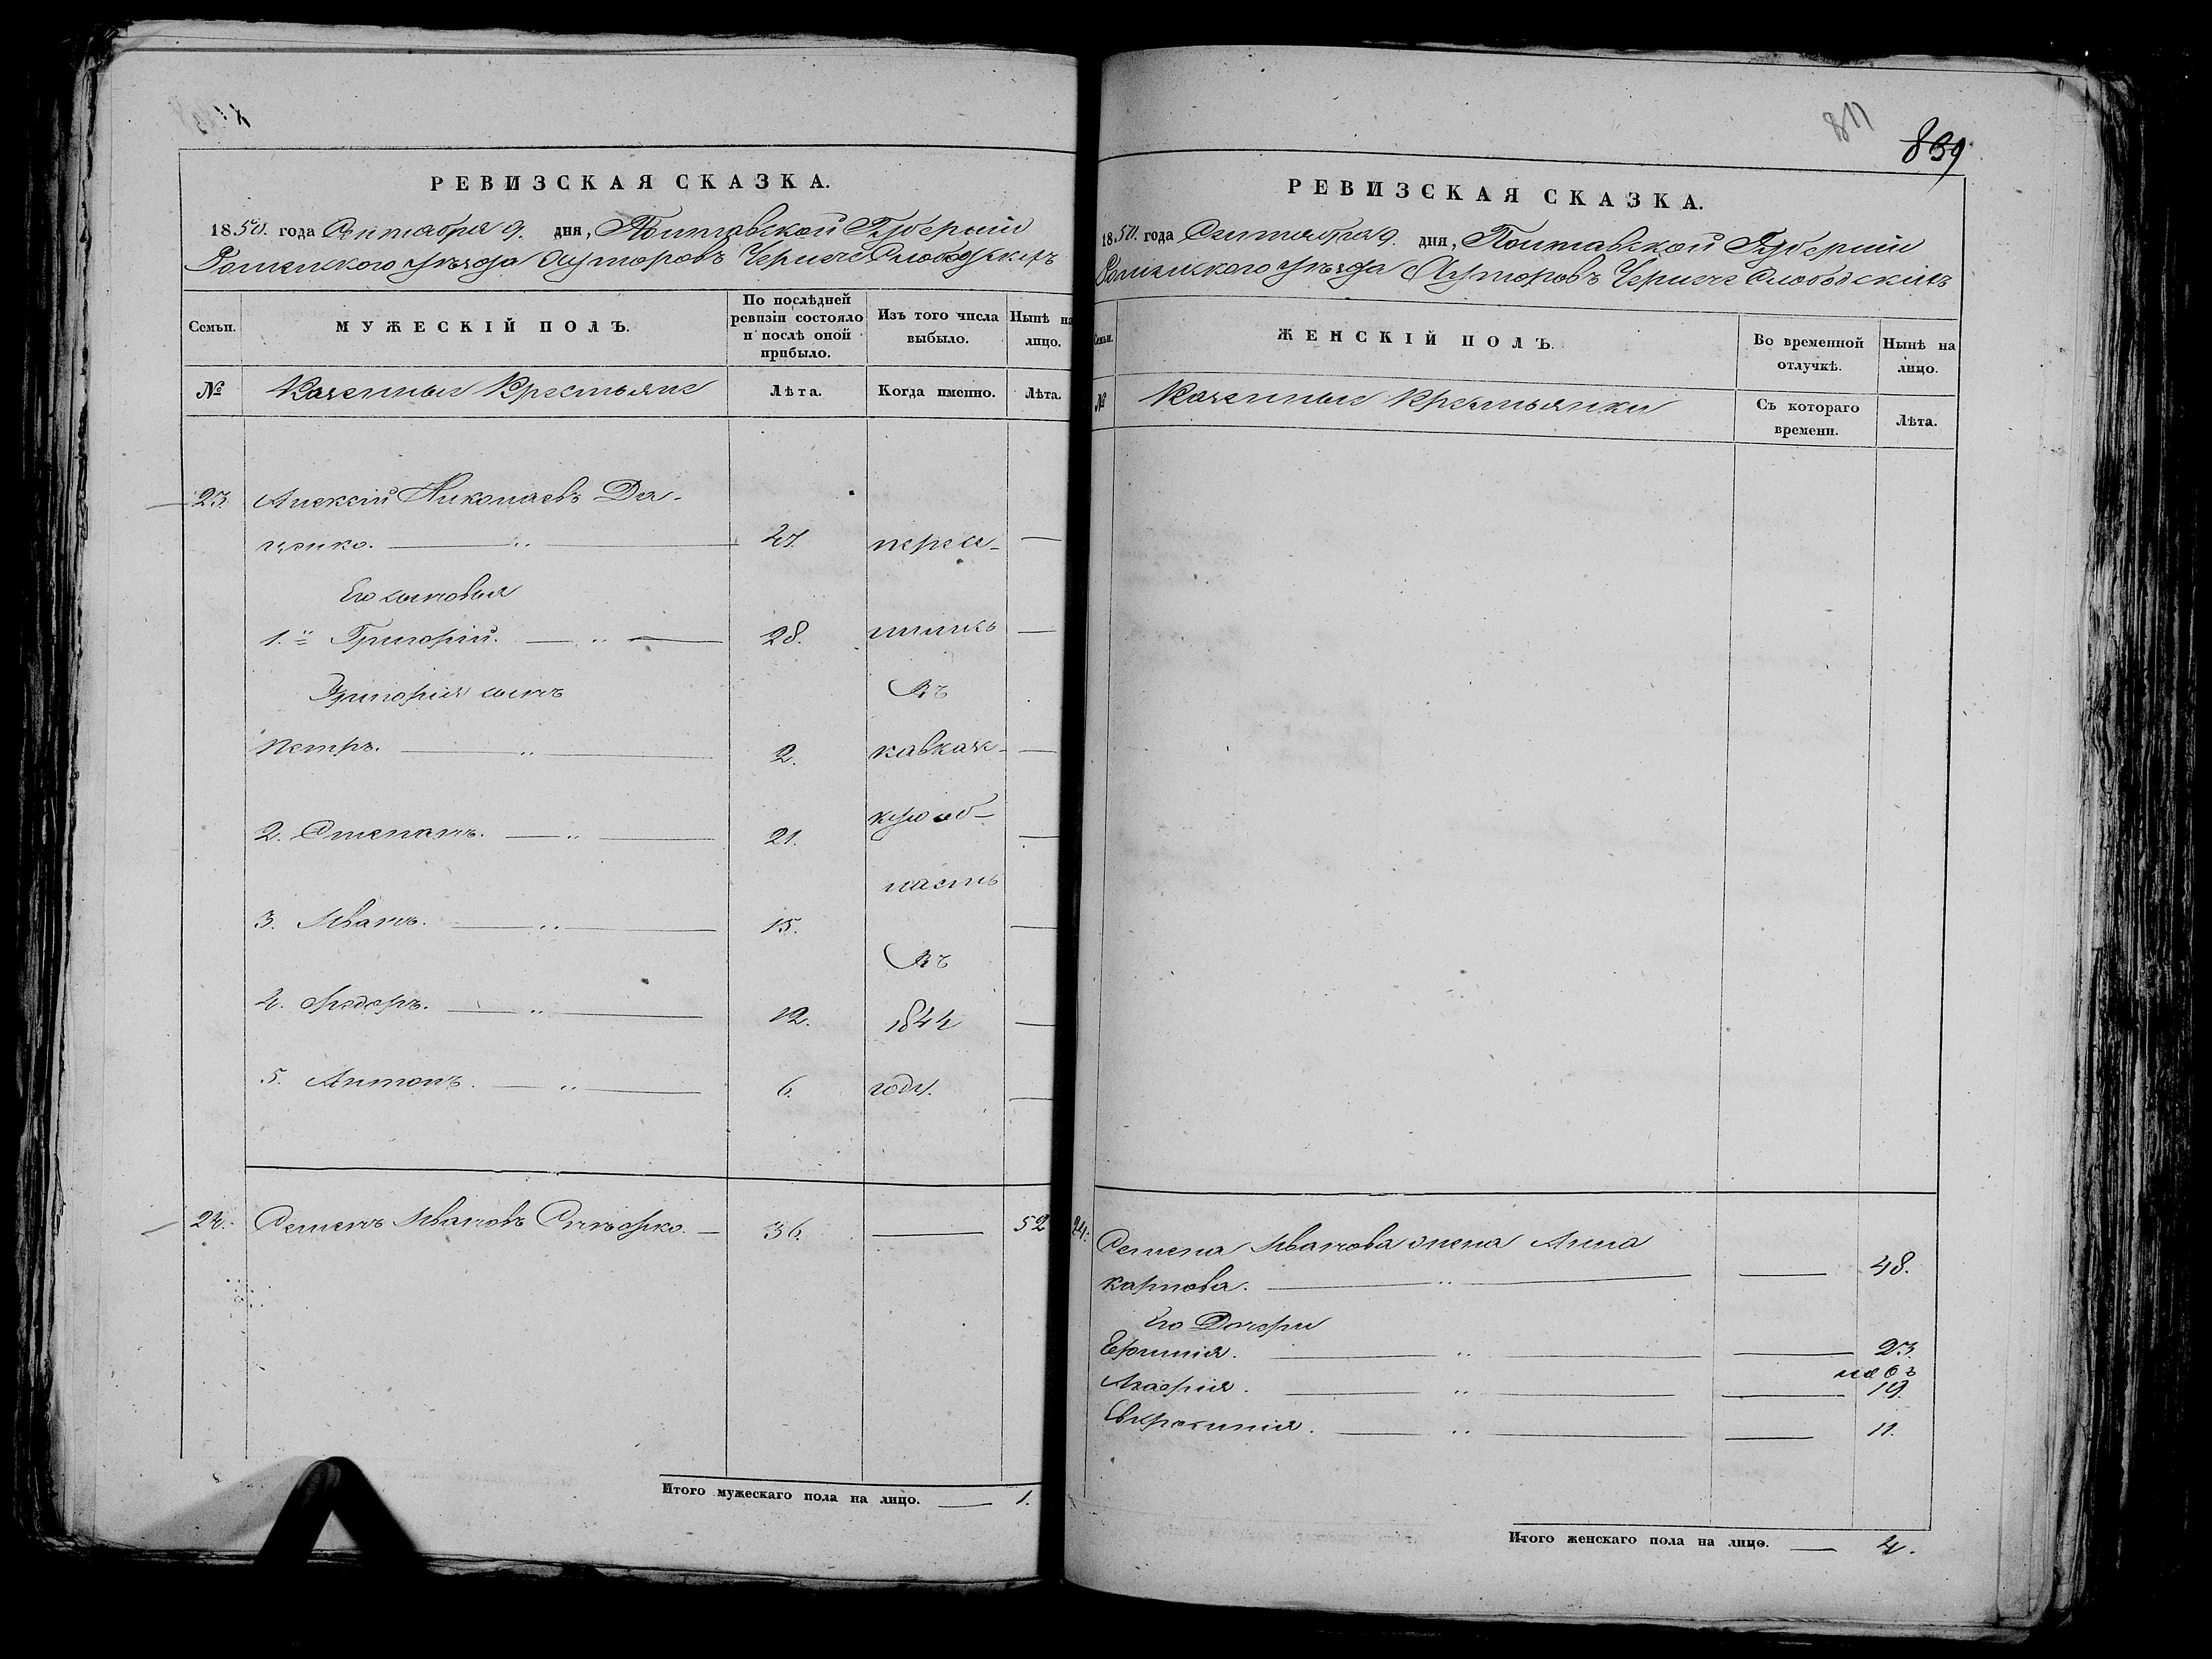 РЕВИЗСКАЯ СКАЗКА.
1850. года Сентября 9. дня, Полтавской Губерніи
Роменского уѣзда Хуторовъ Чернече Слободскихъ
Семьи.
МУЖЕСКІЙ ПОЛЪ.
По послѣдней ревизіи состояло и послѣ оной прибыло.
Изъ того числа выбыло.
Нынѣ на лицо.
№
Казенные Крестьяне
Лѣта.
Когда именно.
Лѣта.
23. Алексій Николаевъ Да-
ценко. 47. пересе-
Его сыновья
1.й Григорій. 28. лились
Григорія сынъ Въ
Петръ. 2. кавказс-
2. Степанъ. 21. кую об-
ласть
3. Иванъ. 15.
Въ
4. Федоръ. 12. 1844
5. Антонъ. 6. году.
24. Семенъ Ивановъ 36. 52
Итого мужескаго пола на лицо. 1.
811
839
РЕВИЗСКАЯ СКАЗКА.
1850. года Сентября 9. дня, Полтавской Губерніи
Роменского уѣзда Хуторовъ Чернече Слободскихъ
Семьи.
ЖЕНСКІЙ ПОЛЪ.
Во временной отлучкѣ.
Нынѣ на лицо.
№
Казенные Крестьянки
Съ котораго времени.
Лѣта.
24. Семена Иванова жена Анна
Карпова. 48.
Его Дочери
23.
19.
Евфросинія. 11.
Итого женскаго пола на лицо. 4.